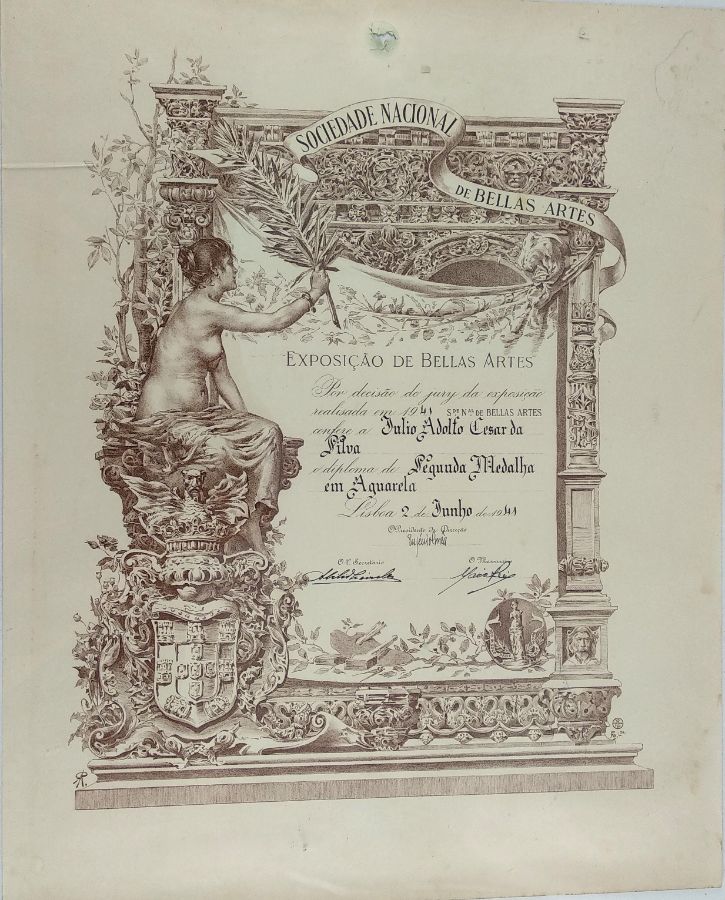 SOCIEDADE NACIONAL
DE BELLAS ARTES
EXPOSIÇÃO DE BELLAS ARTES
Por decisão do jury da exposição
realisada em 1941 Sde Nal DE BELLAS ARTES
confere a Julio Adolfo Cesar da
Silva
o diploma de Segunda Medalha
em Aguarela
Lisboa 2 de Junho de 1941
O Presidente da Direcção
O 1º Secretario
O